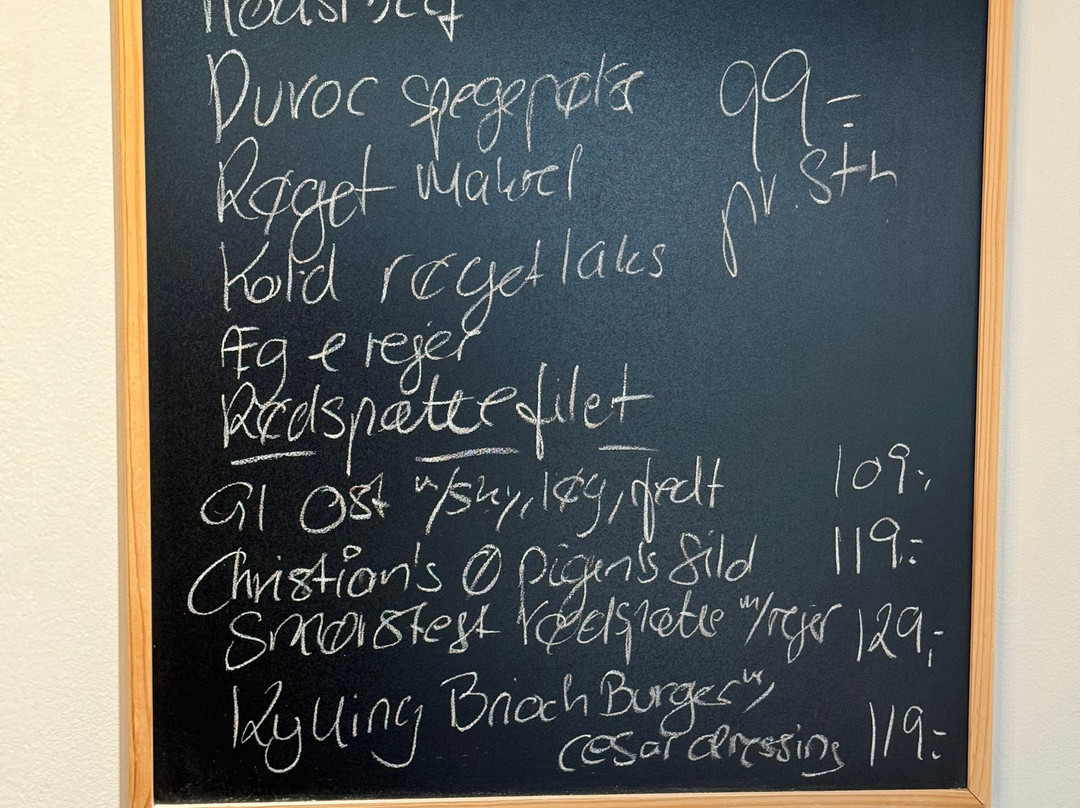 Roastbeef
Duroc spegepølse 99,-
Røget Makrel pr. Stk
Kold røget laks
Æg & rejer
Rødspættefilet
Gl Ost m/sky, løg, fedt 109,-
Christian's Ø pigen's Sild 119,-
Smørstegt rødspætte m/rejer 129,-
Kylling Brioch Burger m/
cesar dressing 119,-